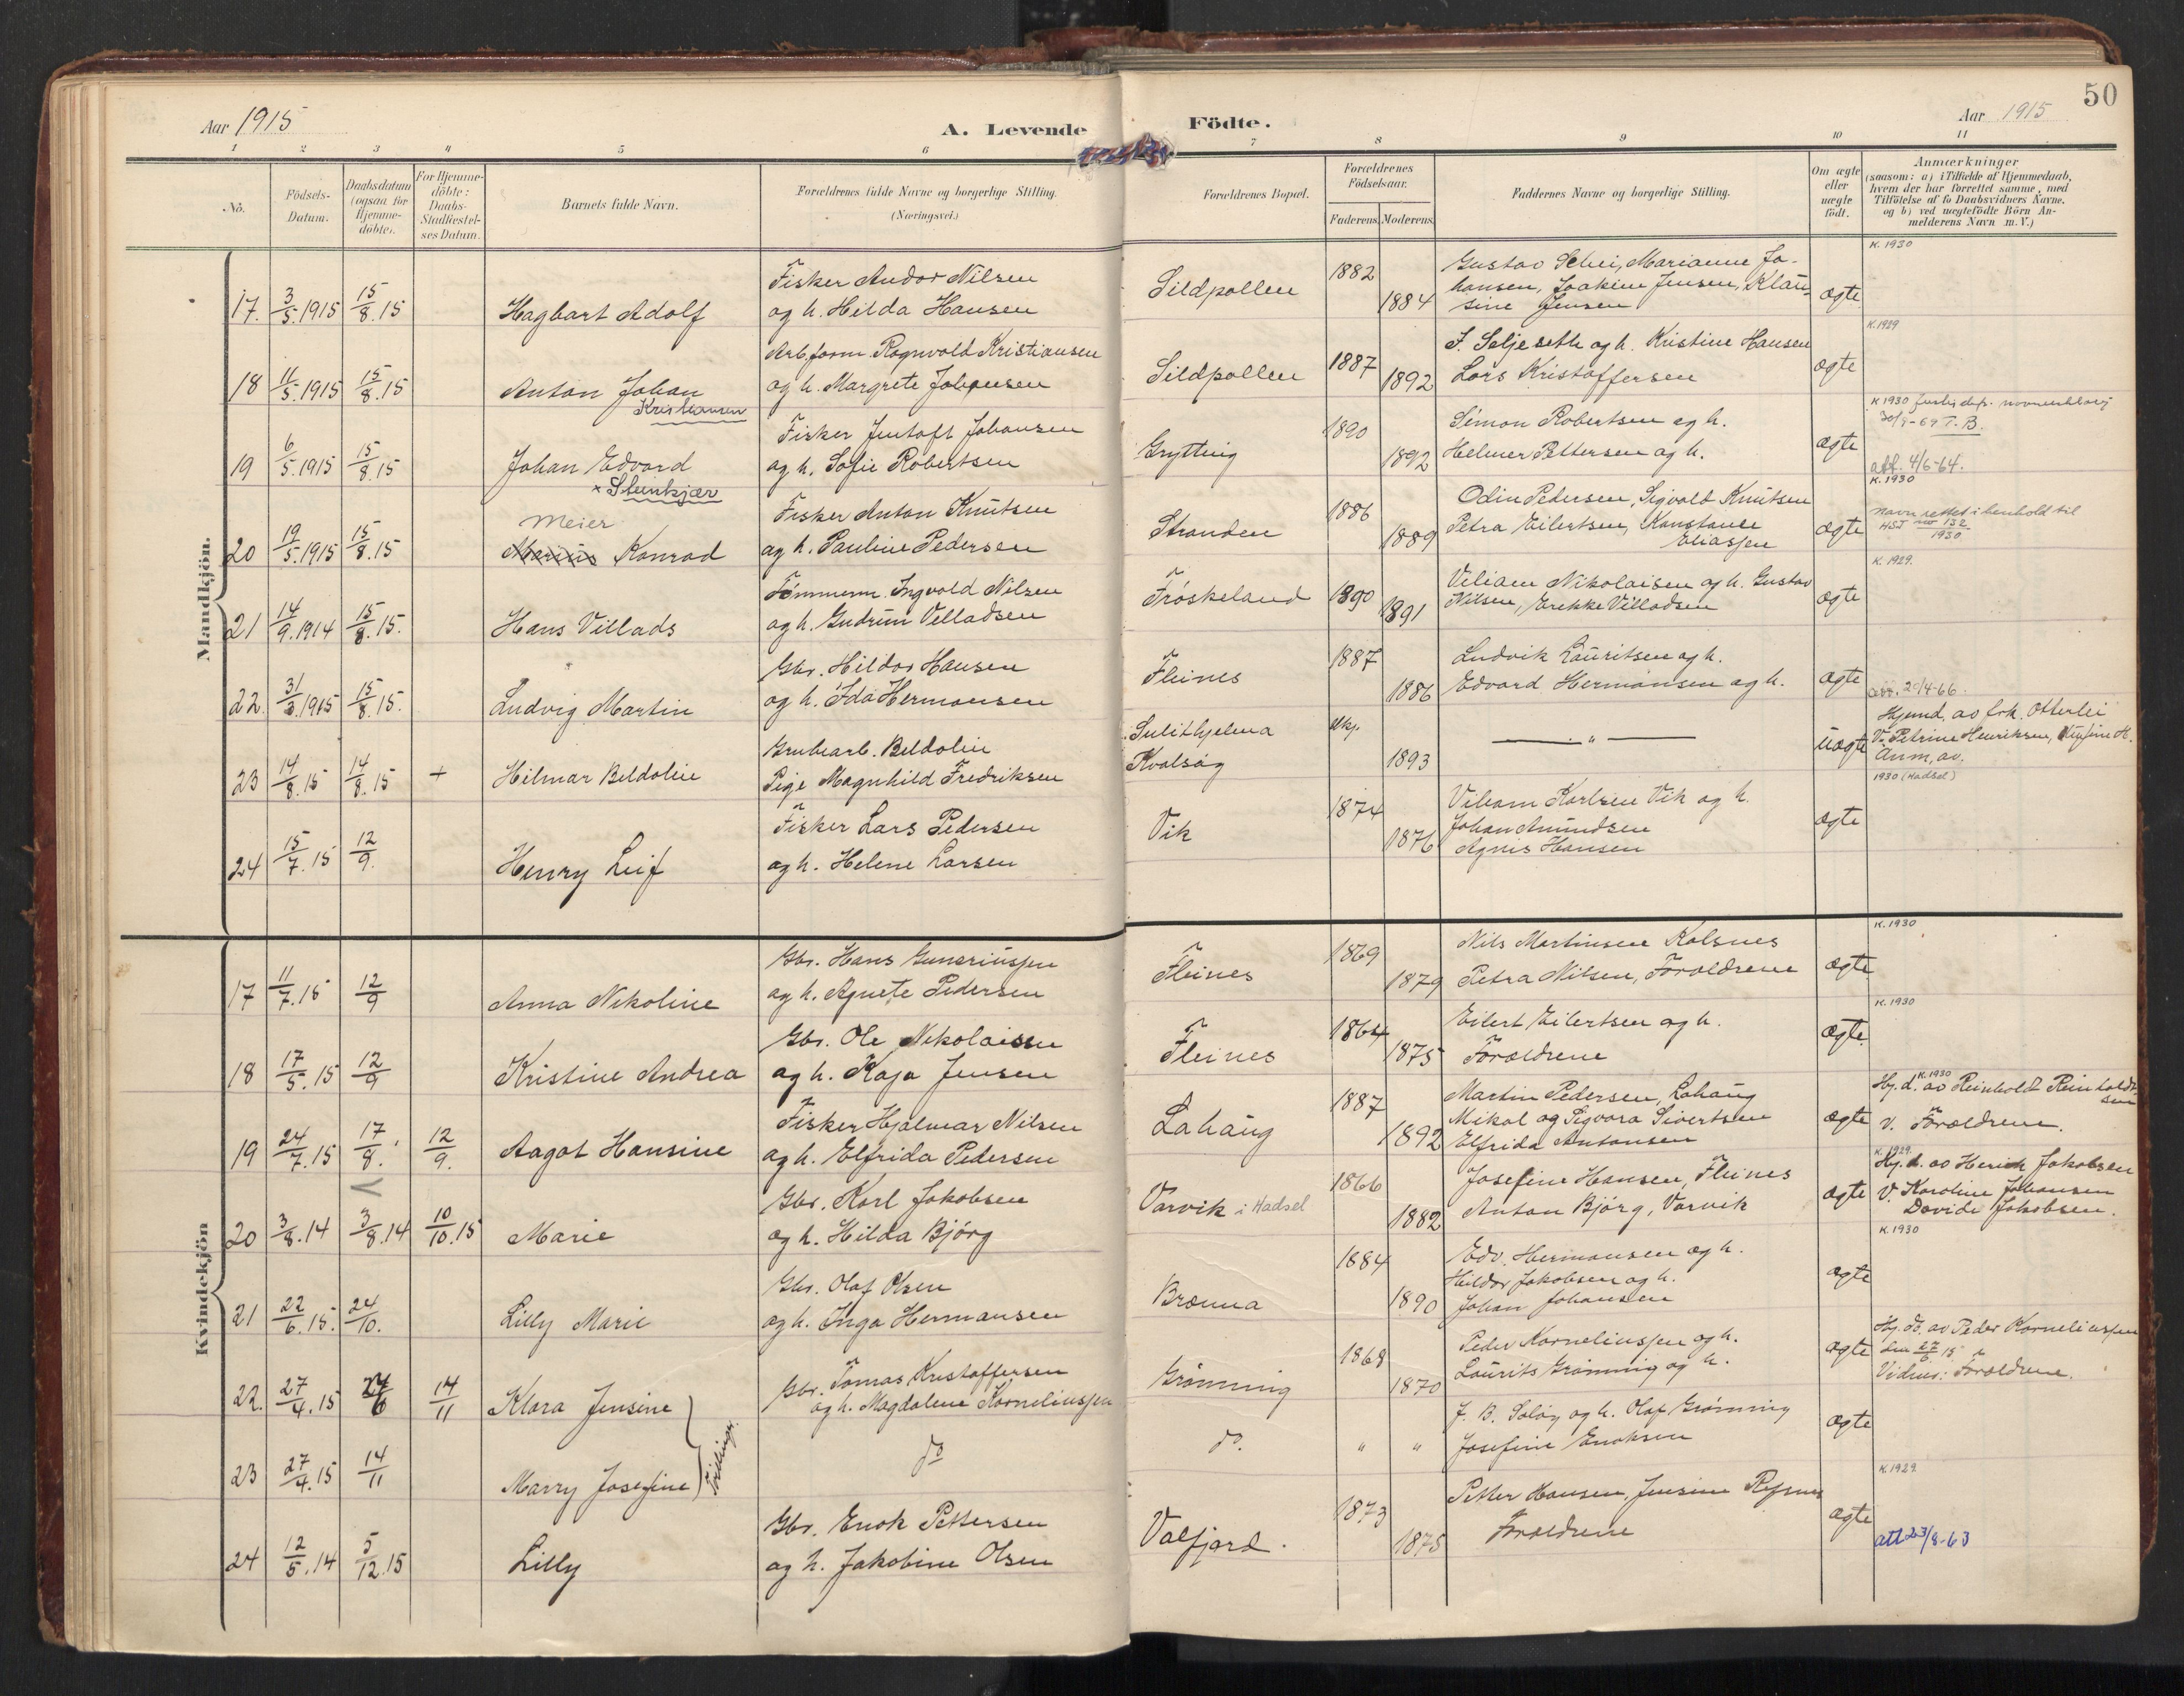 50
Aar 1915
A. Levende Födte.
Aar 1915
1 2 3 4 5 6 7 8 9 10 11
No.
Födsels-Datum.
Daabsdatum (ogsaa for Hjemme-döbte).
For Hjemme-döbte: Daabs-Stadfæstel-ses Datum.
Barnets fulde Navn.
Forældrenes fulde Navne og borgerlige Stilling.
(Næringsvei.)
Forældrenes Bopæl.
Forældrenes Födselsaar.
Faderens. Moderens.
Faddernes Navne og borgerlige Stilling.
Om ægte eller uægte födt.
Anmærkninger
(saasom: a) i Tilfælde af Hjemmedaab, hvem der har forrettet samme, med Tilföielse af to Daabsvidners Navne, og b) ved uægtefödte Börn An-melderens Navn m. V.)
Mandkjön.
17. 3/5.1915 15/8.15 Hagbart Adolf
Fisker Andor Nilsen
og h. Hilda Hansen
Sildpollen 1882 1884
Gustav Schei, Marianne Jo-
hansen, Joakim Jensen, Klau-
sine Jensen
ægte
K. 1930
18 11/5.1915 15/8.15 Anton Johan
Kristiansen
Arb.form. Ragnvald Kristiansen
og h. Margrete Johansen
Sildpollen 1887 1892
J. Seljeseth og h. Kristine Hansen
Lars Kristoffersen
ægte
K. 1929
19 6/5.1915 15/8.15 Johan Edvard
x Steinkjær
Fisker Jentoft Johansen
og h. Sofie Robertsen
Grytting 1890 1892
Simon Robertsen og h.
Helmer Pettersen og h.
ægte
K 1930
T. B.
att. 4/6-64.
20 19/5.1915 15/8.15 Meier
Marius Konrad
Fisker Anton Knutsen
og h. Pauline Pedersen
Stranden 1886 1889
Odin Pedersen, Sigvald Knutsen
Petra Eilertsen, Konstanse
Eliassen
ægte
K. 1930
navn rettet i henhold til
HSJ no 132
1930
21 14/9.1914 15/8.15. Hans Villads
Tömmerm. Ingvald Nilsen
og h. Gudrun Velladsen
Fröskeland 1890 1891
Viliam Nikolaisen og h. Gustav
Nilsen, Erekke Villadsen
ægte
K. 1929.
22. 31/3.1915 15/8.15. Ludvig Martin
Gbr. Hildor Hansen
og h. Ida Hermansen
Fleines 1887 1886
Ludvik Lauritsen og h.
Edvard Hermansen og h.
ægte
att. 20/4-66.
23 14/8.15 14/8.15 + Hilmar Beldolin
Grubearb. Beldolin
Pige Magnhild Fredriksen
Sulithjelma
Kvalsåg
ukj. 1893
— " —
uægte
Hjemd. av frk. Otterlei
V. Petrine Henriksen,
Anm. av.
1930 (Hadsel)
24 15/7.15 12/9. Henry Leif
Fisker Lars Pedersen
og h. Helene Larsen
Vik 1874 1876
Viliam Karlsen Vik og h.
Johan Amundsen
Agnes Hansen
ægte
Kvindekjön
17 11/7.15 12/9 Anna Nikoline
Gbr. Hans Gunariussen
og h. Agnete Pedersen
Fleines 1869 1879
Nils Martinsen Kalsnes
Petra Nilsen, Forældrene
ægte
K. 1930
18 17/5.15 12/9 Kristine Andrea
Gbr. Ole Nikolaisen
og h. Kaja Jensen
Fleines 1864 1875
Eilert Eilertsen og h.
Forældrene
ægte
K. 1930
19 24/7.15 17/8. 12/9. Aagot Hansine
Fisker Hjalmar Nilsen
og h. Elfrida Pedersen
Lahaug 1887 1892
Martin Pedersen, Lahaug
Mikal og Sigvora Sivertsen
Elfrida Antonsen
ægte
K. 1930
Hj. d. av Reinholdt Reinholdt-
sen
v. Forældrene.
20 3/8.14 3/8.14 10/10.15 Marie
Gbr. Karl Jakobsen
og h. Hilda Bjørg
Varvik i Hadsel 1866 1882
Josefine Hansen, Fleines
Anton Bjørg, Varvik
ægte
K. 1929.
Hj. d. av Henrik Jakobsen
V. Karoline Johansen
Davida Jakobsen.
21 22/6.15. 24/10. Lilly Marie
Gbr. Olaf Olsen
og h. Inga Hermansen
Brænna 1884 1890
Edv. Hermansen og h.
Hildor Jakobsen og h.
Johan Johansen
ægte
K. 1930
22. 27/4.15 27/6 14/11 Klara Jensine
Gbr. Tomas Kristoffersen
og h. Magdalene Korneliussen
Grönning 1868 1870
Peder Korneliussen og h.
Laurits Grönning og h.
ægte
Hj. db. av Peder Korneliussen
den 27/6 15
Vidner: Forældrene.
Tvillinger.
23 27/4.15 14/11 Marry Josefine
do
do. " "
J. B. Saløy og h. Olaf Grönning
Josefine Enoksen
ægte
24 12/5.14 5/12.15 Lilly
Gbr. Enok Pettersen
og h. Jakobine Olsen
Valfjord. 1873 1875
Petter Hansen, Jensine
Forældrene
ægte
K. 1929
att 23/8-63